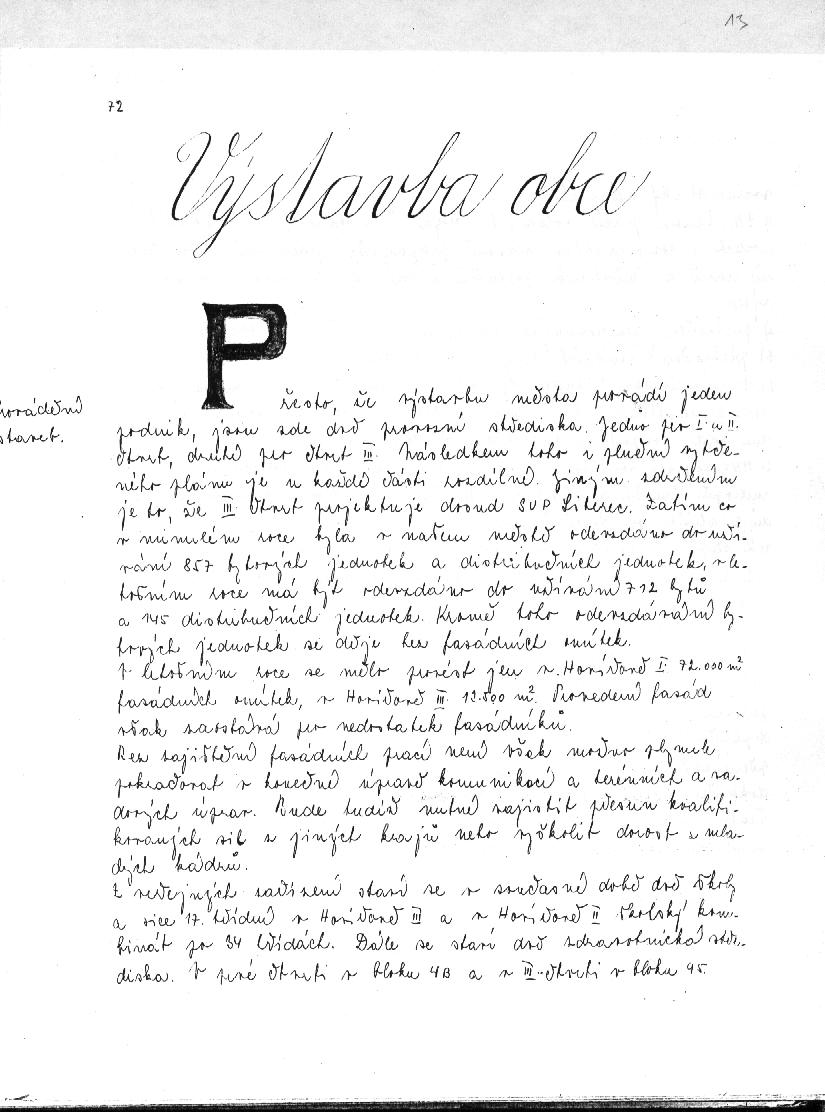 13
72
Výstavba obce
Přesto, že výstavbu města provádí jeden
provádění
staveb.
podnik, jsou zde dvě provozní střediska. Jedno pro I. a II.
čtvrť, druhé pro čtvrť III. Následkem toho i plnění vytče-
ného plánu je v každé části rozdílné. Jiným zdržením
je to, že III. čtvrť projektuje dround SVP Liberec. Zatím co
v minulém roce bylo v našem městě odevzdáno do uží-
vání 857 bytových jednotek a distribučních jednotek, v le-
tošním roce má být odevzdáno do užívání 712 bytů
a 145 distribučních jednotek. Kromě toho odevzdávání by-
tových jednotek se děje bez fasádních omítek.
V letošním roce se mělo provést jen v Horídoně I. 72.000 m²
fasádních omítek, v Horídoně III. 12.500 m². Provedení fasád
však zaostává pro nedostatek fasádníků.
Bez zajištění fasádních prací není však možno plynule
pokračovat v konečné úpravě komunikací a terénních a sa-
dových úprav. Bude tudíž nutné zajistit přesun kvalifi-
kovaných sil z jiných krajů nebo vyškolit dorost z mla-
dých kádrů.
Z veřejných zařízení staví se v současné době dvě školy
a sice 17. třídní v Horídoně III a v Horídoně II školský kom-
binát po 34 třídách. Dále se staví dvě zdravotnická stře-
diska. V prvé čtvrti v bloku 4B a v III. čtvrti v bloku 95.